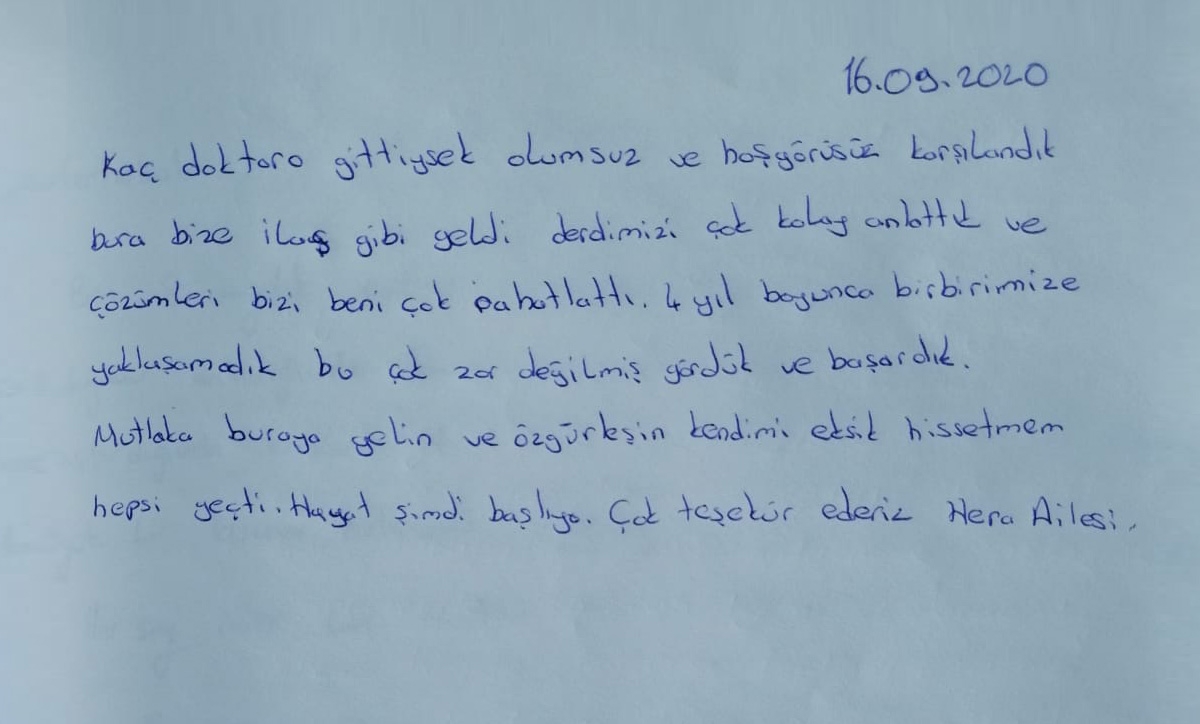 16.09.2020
Kaç doktora gittiysek olumsuz ve hoşgörüsüz karşılandık
bura bize ilaş gibi geldi derdimizi çok kolay anlattık ve
çözümleri bizi beni çok rahatlattı. 4 yıl boyunca birbirimize
yaklaşamadık bu çok zor değilmiş gördük ve başardık.
Mutlaka buraya gelin ve özgürleşin kendimi eksik hissetmem
hepsi geçti. Hayat şimdi başlıyo. Çok teşekür ederiz Hera Ailesi.